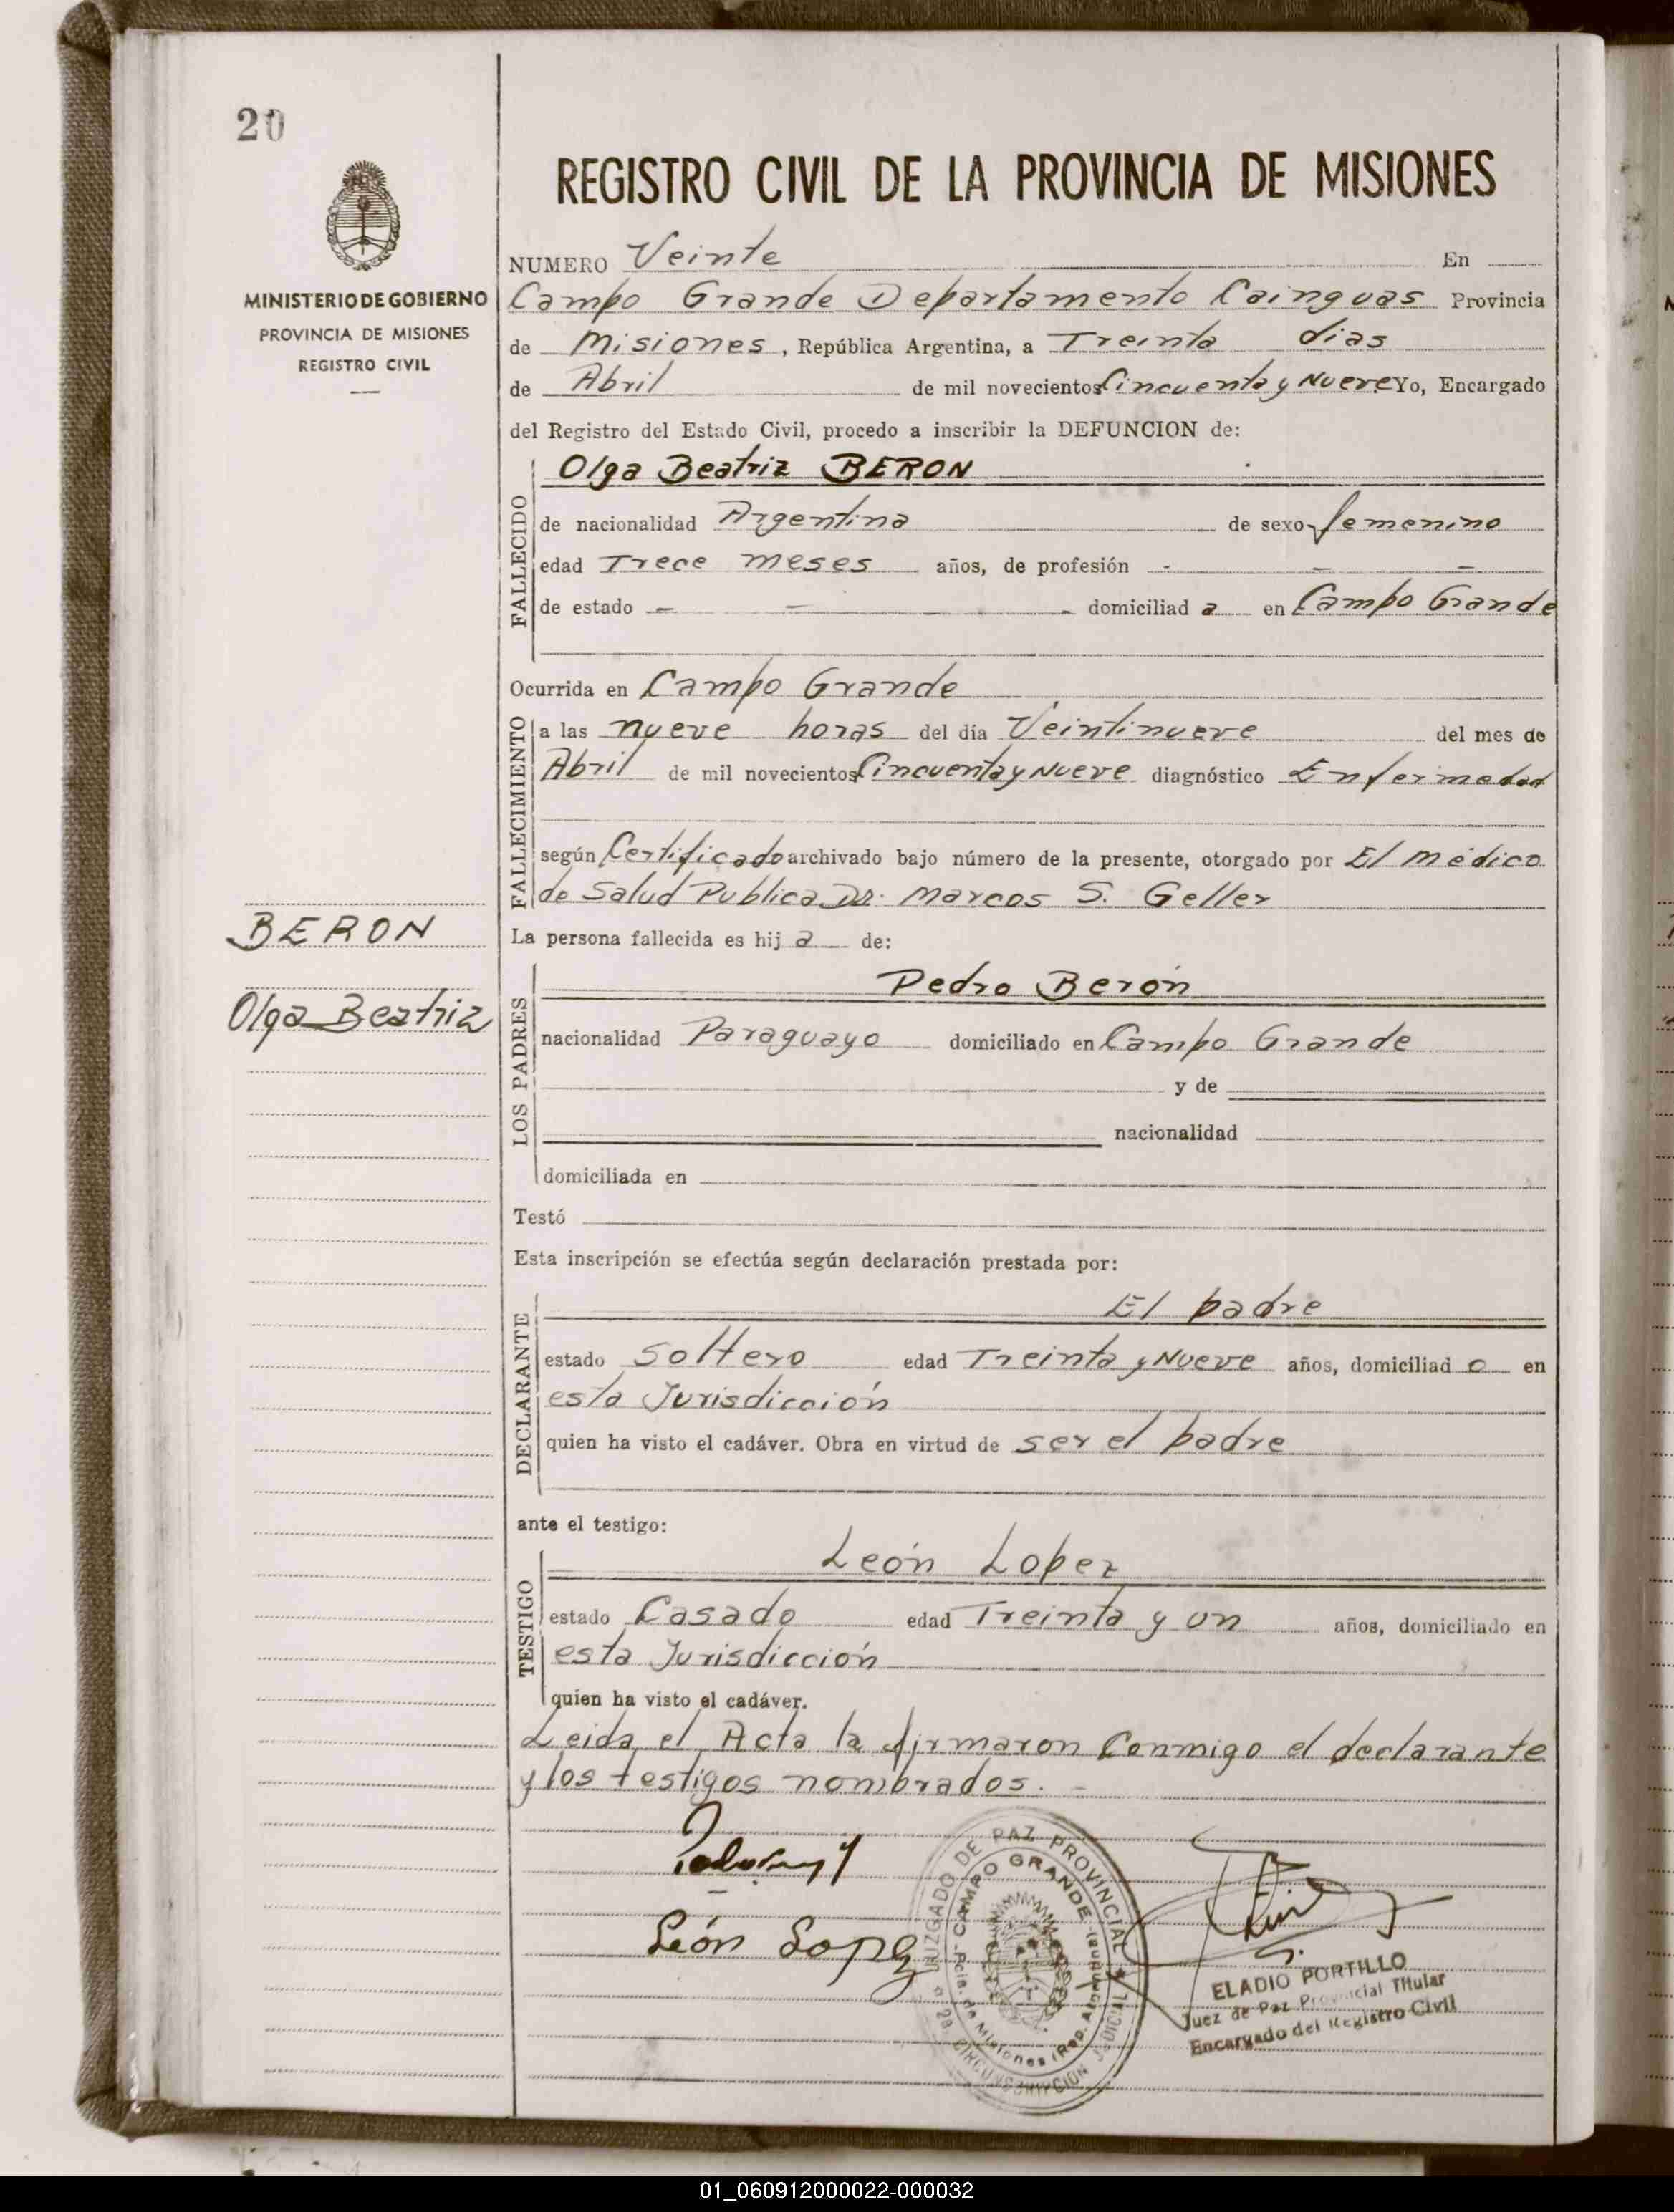 20
MINISTERIO DE GOBIERNO
PROVINCIA DE MISIONES
REGISTRO CIVIL
REGISTRO CIVIL DE LA PROVINCIA DE MISIONES
NUMERO Veinte En
Campo Grande Departamento Cainguas Provincia
de Misiones, República Argentina, a Treinta dias
de Abril de mil novecientos Cincuenta y Nueve Yo, Encargado
del Registro del Estado Civil, procedo a inscribir la DEFUNCION de:
FALLECIDO
Olga Beatriz BERON
de nacionalidad Argentina de sexo femenino
edad Trece meses años, de profesión - - -
de estado - - - domiciliad a en Campo Grande
Ocurrida en Campo Grande
FALLECIMIENTO
a las nueve horas del día Veintinueve del mes de
Abril de mil novecientos Cincuenta y Nueve diagnóstico Enfermedad
según Certificado archivado bajo número de la presente, otorgado por El médico
de Salud Publica Dr. Marcos S. Geller
BERON
Olga Beatriz
La persona fallecida es hij a de:
LOS PADRES
Pedro Berón
nacionalidad Paraguayo domiciliado en Campo Grande
y de
nacionalidad
domiciliada en
Testó
Esta inscripción se efectúa según declaración prestada por:
DECLARANTE
El padre
estado Soltero edad Treinta y Nueve años, domiciliad o en
esta Jurisdicción
quien ha visto el cadáver. Obra en virtud de ser el padre
ante el testigo:
TESTIGO
León Lopez
estado Casado edad Treinta y un años, domiciliado en
esta Jurisdicción
quien ha visto el cadáver.
Leida el Acta la firmaron Conmigo el declarante
y los testigos nombrados. -
León Lopez
JUZGADO DE PAZ PROVINCIAL
CAMPO GRANDE
Pcia. de Misiones (Rep. Argentina)
2a. CIRCUNSCRIPCION JUDICIAL
ELADIO PORTILLO
Juez de Paz Provincial Titular
Encargado del Registro Civil
01_060912000022-000032